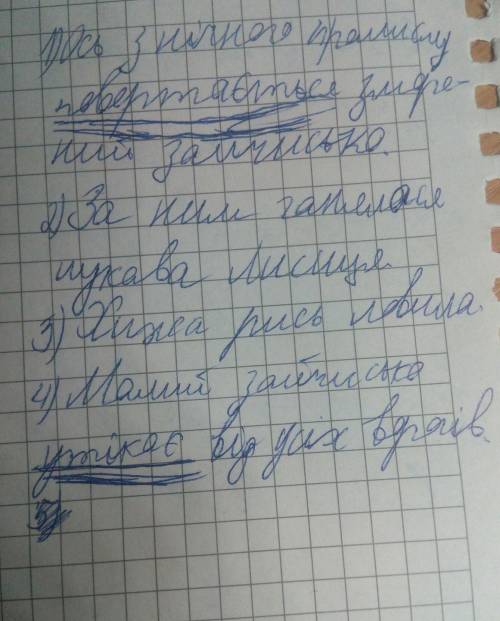 1) Ось з нічного промислу
повертається змарне-
ний зайчисько.
2) За ним ганялася
лукава лисиця
3) Хижа рись ловила.
4) Малий зайчисько
утікає від усіх врагів.
5)